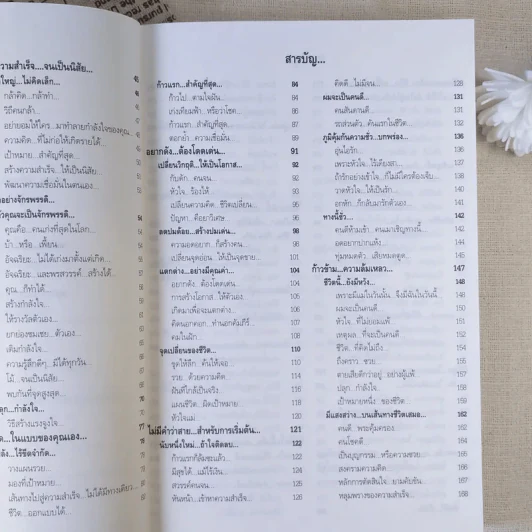 ความสำเร็จ....จนเป็นนิสัย...
ใหญ่...ไม่คิดเล็ก...
กล้าคิด...กล้าทำ...
วิถีคนกล้า...
อย่ายอมให้ใคร...มาทำลายกำลังใจของคุณ...
ความคิด...ที่ไม่ก่อให้เกิดรายได้...
เป้าหมาย...สำคัญที่สุด...
สร้างความสำเร็จ...ให้เป็นนิสัย...
พัฒนาความเชื่อมั่นในตนเอง...
อย่างจักรพรรดิ...
คุณจะเป็นจักรพรรดิ...
คุณคือ...คนเก่งที่สุดในโลก...
บ้า...หรือ...เพี้ยน...
อัจฉริยะ...ไม่ได้เก่งมาตั้งแต่เกิด...
อัจฉริยะ...และพรสวรรค์...สร้างได้...
คุณ...ก็ทำได้...
สร้างกำลังใจ...
ให้รางวัลตัวเอง...
ยกย่องชมเชย...ตัวเอง...
เติมกำลังใจ...
ความรู้สึกดีๆ...มีได้ทุกวัน...
โม้...จนเป็นนิสัย...
พบกันที่จุดสูงสุด...
ลุก...กำลังใจ...
วิธีสร้างแรงจูงใจ...
ในแบบของคุณเอง...
ไร้ขีดจำกัด...
วางแผนรวย...
มองที่เป้าหมาย...
เส้นทางไปสู่ความสำเร็จ...ไม่ได้มีทางเดียว...
ชีวิต...ออกแบบได้...
สารบัญ...
ก้าวแรก...สำคัญที่สุด... 84
ก้าวไป...ตามใจฝัน... 84
เก่งเทียมฟ้า...หรือวาโชค... 85
ก้าวแรก...สำคัญที่สุด... 86
ตอกย้ำ...ความเชื่อมั่น... 87
อยากดัง...ต้องโดดเด่น... 91
เปลี่ยนวิกฤติ...ให้เป็นโอกาส... 92
กับดัก...คนจน... 92
หัวใจ...ร้องไห้... 92
เปลี่ยนความคิด...ชีวิตเปลี่ยน... 95
ปัญหา...คือยาวิเศษ... 96
ลดปมด้อย...สร้างปมเด่น... 98
ความอดอยาก...ก็สร้างคน... 98
เปลี่ยนจุดอ่อน...ให้เป็นจุดขาย... 98
แตกต่าง...อย่างมีคุณค่า... 104
อยากดัง...ต้องโดดเด่น... 104
การสร้างโอกาส...ให้ตัวเอง... 104
เกิดมาเพื่อจะแตกต่าง... 106
คิดนอกคอก...ทำนอกคัมภีร์... 106
คมในฝัก... 108
จุดเปลี่ยนของชีวิต... 110
จุดให้ลึก...ค้นให้เจอ... 110
รวย...ด้วยความคิด... 112
ฝันที่ใกล้เป็นจริง... 116
แผนชีวิต...มีดเป้าหมาย... 118
หัวใจแม่ 120
ไม่มีคำว่าสาย...สำหรับการเริ่มต้น... 121
นับหนึ่งใหม่...ถ้าใจติดลบ... 122
ก้าวแรกก็ล้มซะแล้ว... 122
มีสุขได้...แม้ไร้เงิน... 124
สวรรค์คนจน... 126
หันหน้า...เข้าหาความสำเร็จ... 126
คิดดี...ไม่มีจน... 128
ผมจะเป็นคนดี... 131
คนสันดานดี... 131
รถส่วนตัว...คันแรกในชีวิต... 132
ภูมิคุ้มกันความชั่ว...บกพร่อง... 136
ฮุ่นไอรัก... 136
เพราะหัวใจ...ไร้เดียงสา... 136
ถ้ารักอย่างเข้าใจ...ก็ไม่มีใครต้องเจ็บ... 138
วาดหัวใจ...ให้เป็นรัก... 140
อกหัก...ก็กลับมารักตัวเอง... 140
ทางนี้ชั่ว... 142
คนดีห้ามเข้า...คนเมาเชิญทางนี้... 142
อดอยากปากแห้ง... 144
ทุ่มหมดตัว...เสียหมดตูด... 144
ก้าวข้าม...ความล้มเหลว... 147
ชีวิตนี้...ยังมีหวัง... 148
เพราะมีแม่ในวันนั้น...จึงมีฉันในวันนี้ 148
ผมจะเป็นคนดี... 150
หัวใจ...ที่ไม่ยอมแพ้ 150
เหตุผล...ที่จะเป็นคนดี 152
ชีวิต...ที่คิดไม่ถึง... 154
ถึงคราว...ซวย... 155
ตายเสียดีกว่าอยู่...อย่างผู้แพ้... 157
ปลุก...กำลังใจ... 158
เป้าหมายหนึ่ง...ของชีวิต... 159
มีแสงสว่าง...บนเส้นทางชีวิตเสมอ... 162
คนดี...พระคุ้มครอง 162
คนโชคดี 162
เป็นบุญกรรม...หรือความซวย... 164
สงครามความคิด... 166
หลักการตัดสินใจ...ยามคับขัน... 167
หลุมพรางของความสำเร็จ... 168